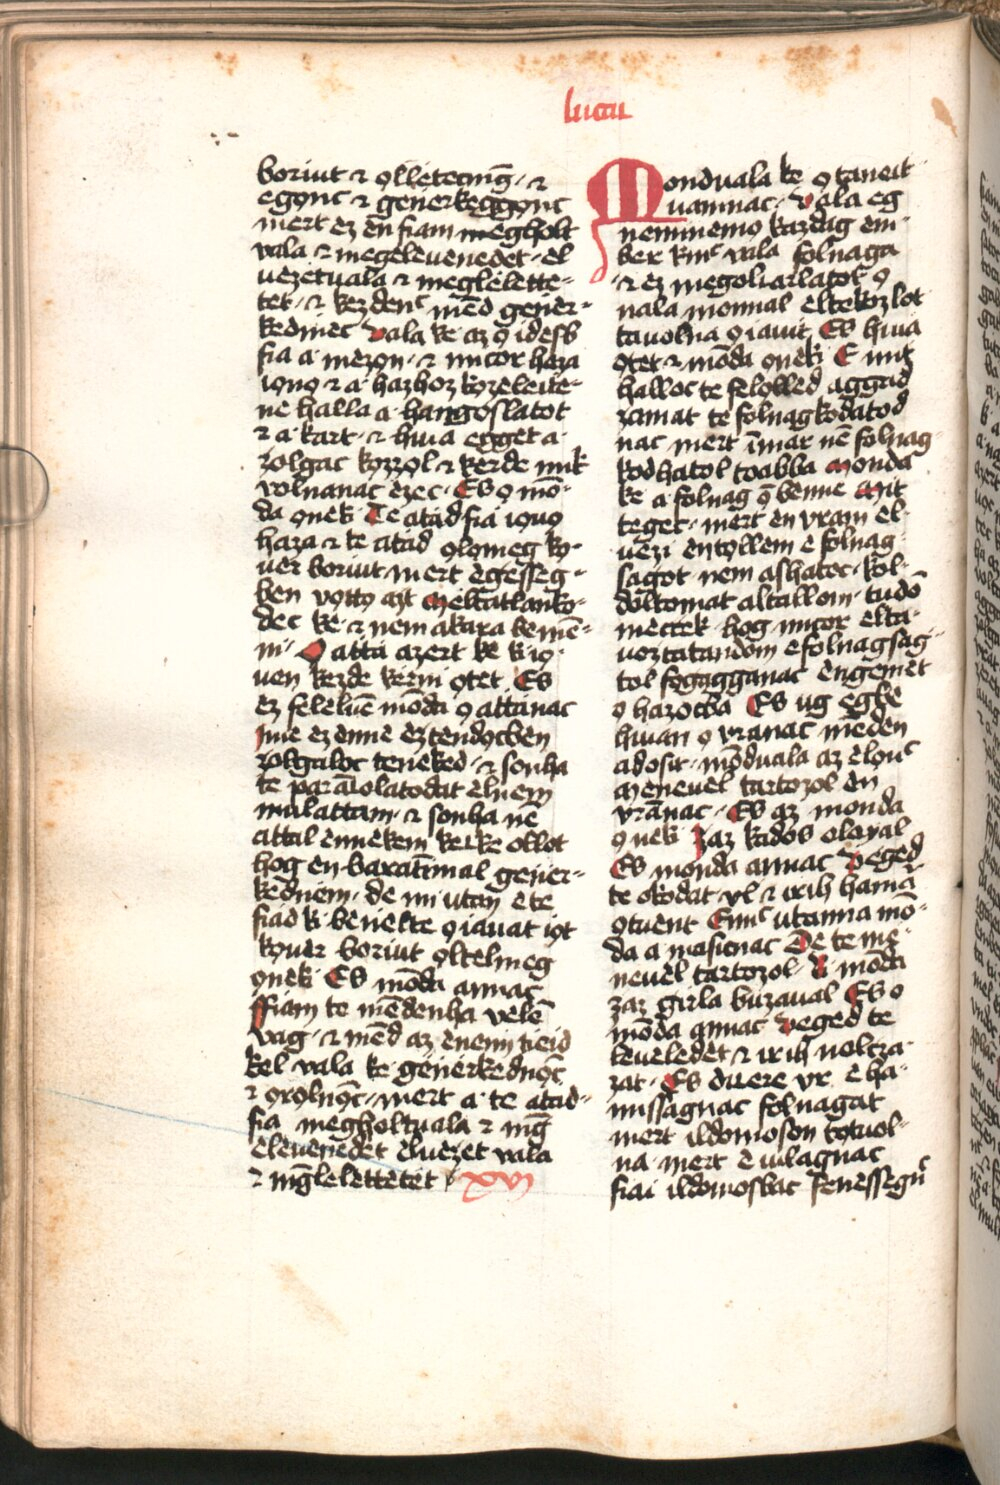 lucaꝭ
boriut ⁊ ọlletecmg̅ · ⁊
egọnc ⁊ generkeggọnc
mert ez en̅ fiam megholt
vala ⁊ megeleuenedet · el
uezetuala ⁊ megleletté-
tet · ⁊ kezdenc me̅d gener-
kedniec Vala ke az ọ idesb
fia a · mezọn · ⁊ micor haza
iọuọ ⁊ a · hazhoz kọzeleite-
ne halla a · hangoslatot
⁊ a · kart · ⁊ hiua egget a ·
zolgac kọzzọl ⁊ kerde mik
volnanac ezec · Es ọ mo̅-
da ọnek · Te atadfia iọuọ
haza ⁊ te atad ọlọmeg kọ-
uer boriut mert egesseg-
ben vọtto ạt Meltatlanko-
dec ke · ⁊ nem akara beme̅-
ni · O atta azert ke kiọ-
uen kezde kerni ọtet Es
ez feleluē mo̅da ọ attanac
Ime ez enne eztendọcben
zolgaloc teneked · ⁊ sonha
te para̅colatodat elnem
mulattam · ⁊ sonha ne̅
attal ennekem kecke ollot
hog en baratimmal gener-
kednem · de mi utan e te
fiad ki beuelte ọiauat iọt
kọuer boriut ọltelmeg
ọnek · Es mo̅da annac
Fiam te me̅denha vele̅
vag · ⁊ me̅d az enemi tieid
kel vala ke generkednọc
⁊ ọrọlnọc · mert a · te atad-
fia megholtuala ⁊ mg̅
eleuenedet eluezet vala
⁊ mg̅lelettetet · xvi
Monduala ke ọ taneit-
uaninac · Vala eg
nemmemọ kazdag em-
ber kinc̅ vala folnaga
⁊ ez megoltarlatot ọ
nala monnal eltekozlot
tauolna ọ iauit Es hiua
ọtet ⁊ mo̅da ọneki E mit
halloc te felọlled aggad
zamat te folnagkodatod
nac mert imar ne̅ folnag-
kodhatol touabba Monda
ke a folnag ọ̅ benne Mit
teges · mert en vram el-
uezi entọllem e folnag-
sagot · nem ashatoc · kol-
doltomat altallom · tudo̅
mectek · hog micor elta-
uoztatandom e folnagsag-
tol fogagganac engemet
ọ hazocba Es ug egbe
hiuan ọ vranac meden
adosit · mo̅duala az elọuc̅
Meneuel tartozol en
vra̅nac · Es az monda
ọnek Zaz kados olayal
Es monda annac Veged
te okodat · vl ⁊ irih hama̅
ọtuent Ennc̅ utanna mo̅-
da a masicnac De te me-
neuel tartozol · Ki mo̅da
zaz girla buzaual Es ọ
mo̅da annac Veged te
leueledet ⁊ irih nolcza-
zat · Es dicere vr e ha-
missagnac folnagat
mert ildomoson tọtuol-
na · mert e vilagnac
fiai ildomosbac fenessegnc̅